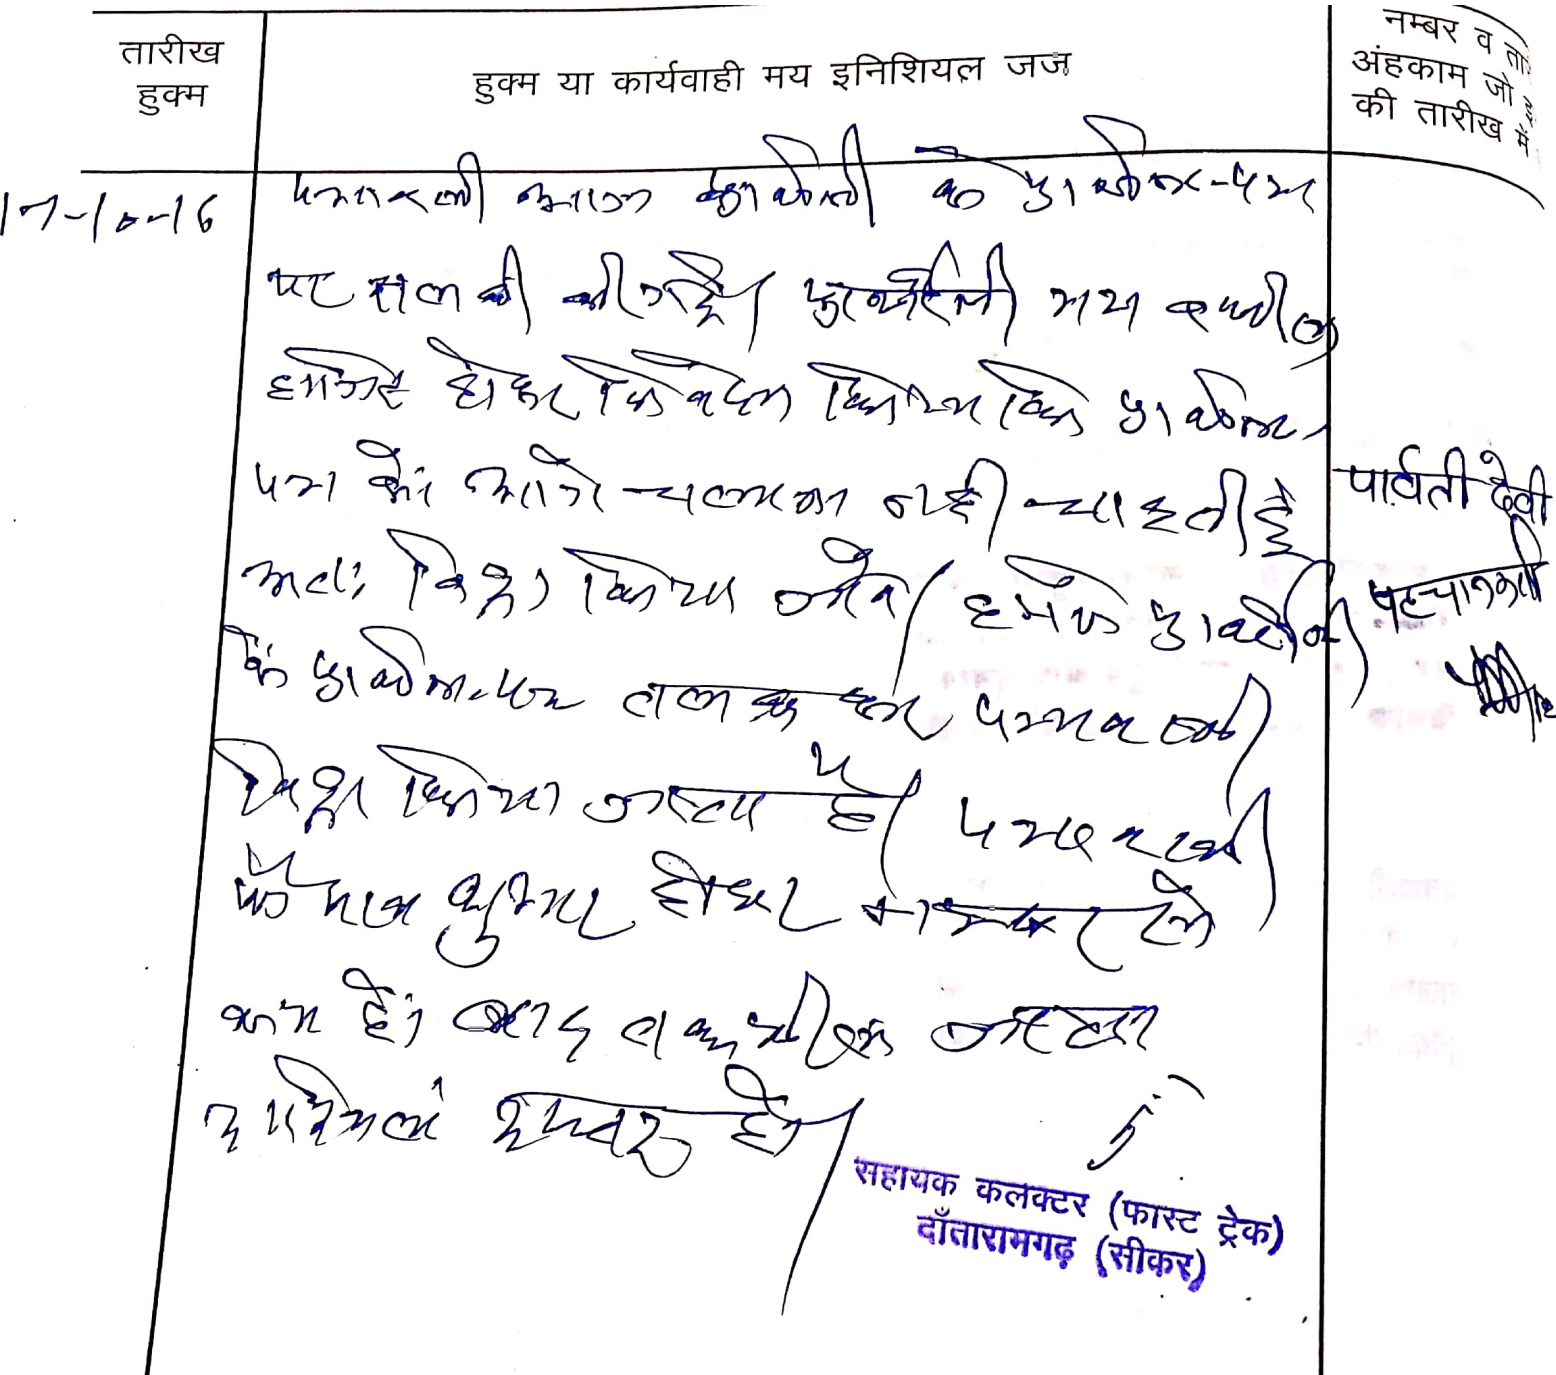 तारीख
हुक्म
हुक्म या कार्यवाही मय इनिशियल जज
नम्बर व ता
अंहकाम जो
की तारीख में
17-10-16
पत्रावली आज प्रार्थिनी के प्रार्थना-पत्र
पर तलब की गई। प्रार्थिनी मय वकील
हाजिर होकर निवेदन किया कि प्रार्थना
पत्र को आगे चलाना नहीं चाहती है
अतः विड्रा किया जावे। प्रार्थिनी
के प्रार्थना-पत्र पत्रावली
विड्रा किया जाता है। पत्रावली
फैसल शुमार होकर नम्बर से
कम हो। बाद तकमील
दाखिल दफ्तर हो।
पार्वती देवी
पहचानकर्ता
सहायक कलक्टर (फास्ट ट्रेक)
दाँतारामगढ़ (सीकर)